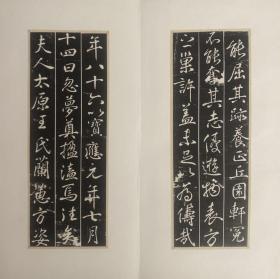 能屈其跡養正丘園軒冕
不能奪其志優遊物表方
之巢許蓋未足以為儔哉
年八十六以寶應元年七月
十四日忽夢奠楹溘焉往矣
夫人太原王氏蘭蕙方姿